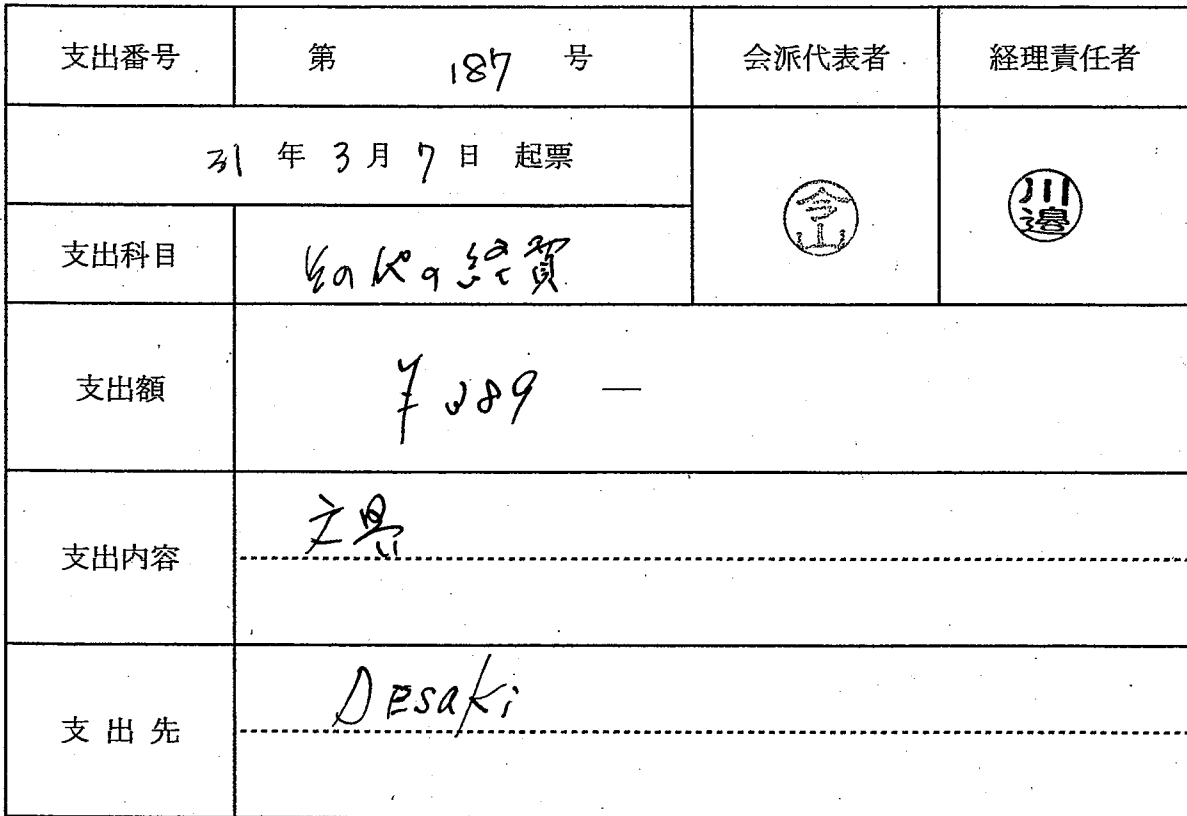 支出番号 第 187 号 会派代表者 経理責任者
31 年 3 月 7 日 起票
今山 川邉
支出科目 その他の経費
支出額 ¥389 —
支出内容 文具
支出先 Desaki